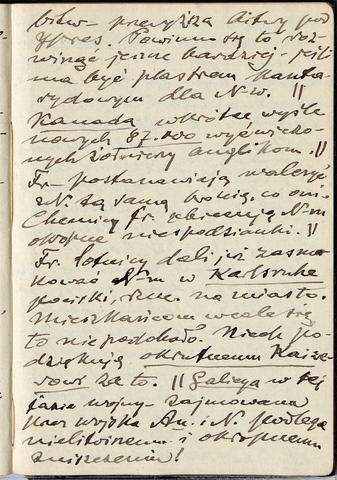 bitw- przewyższa bitwy pod
Ypres. Powinno się to roz-
winąć jeszcze bardziej- jeśli
ma być plastrem kanta-
rydowym dla N-w. ||
Kanada wkrótce wyśle
nowych 87.000 wyćwiczo-
nych żołnierzy anglikom. ||
Fr- postanawiają walczyć
z N. tą samą bronią, co oni-
Chemicy fr. obiecują N-m
okropne niespodzianki. ||
Fr. lotnicy dali już zasma-
kować N-m w Karlsruhe
pociski, na miasto.
Mieszkańcom wcale się
to nie podobało. Niech po-
dziękują okrutnemu Kaize-
rowi za to. || Galicya w tej
fazie wojny- zajmowana
przez wojska Au. i N. podlega
nielitosnemu i okropnemu
zniszczeniu!